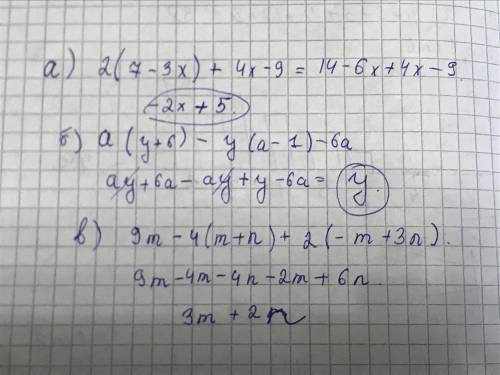 а) 2(7-3x) + 4x-9 = 14-6x+4x-9
-2x+5
б) a(y+6) - y(a-1)-6a
ay+6a-ay+y-6a= y.
в) 9m-4(m+n)+2(-m+3n).
9m-4m-4n-2m+6n.
3m+2n